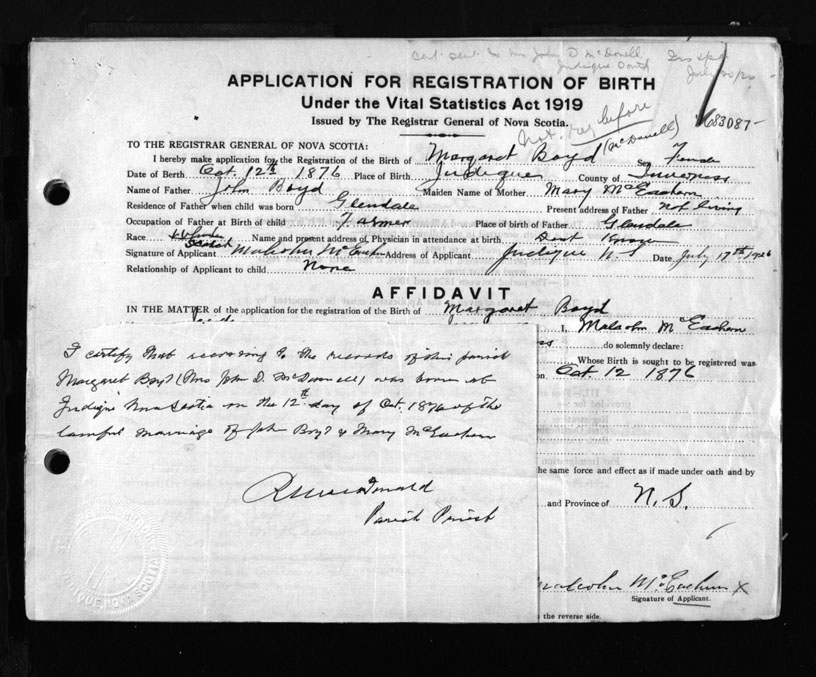 Cert. sent to Mrs John D McDonell
Judique South
APPLICATION FOR REGISTRATION OF BIRTH
Under the Vital Statistics Act 1919
Issued by The Registrar General of Nova Scotia.
Not reg before
683087-
TO THE REGISTRAR GENERAL OF NOVA SCOTIA:
(McDonell)
I hereby make application for the Registration of the Birth of Margaret Boyd Sex Female
Date of Birth Oct. 12th 1876 Place of Birth Judique County of Inverness
Name of Father John Boyd Maiden Name of Mother Mary McEachern
Residence of Father when child was born Glendale Present address of Father not living
Occupation of Father at Birth of child Farmer Place of birth of Father Glendale
Race Scotch Name and present address of Physician in attendance at birth Dont Know
Signature of Applicant Malcolm McEachern Address of Applicant Judique N S Date July 17th 1926
Relationship of Applicant to child None
AFFIDAVIT
IN THE MATTER of the application for the registration of the Birth of Margaret Boyd
I, Malcolm McEachern
ss do solemnly declare:
Whose Birth is sought to be registered was
on Oct. 12 1876
I certify that according to the records of this parish
Margaret Boyd (Mrs John D. McDonnell) was born at
Judique Nova Scotia on the 12th day of Oct. 1876 of the
lawful marriage of John Boyd & Mary McEachern
MacDonald
Parish Priest
the same force and effect as if made under oath and by
and Province of N. S.
JUDIQUE, NOVA SCOTIA
Malcolm McEachern X
Signature of Applicant.
the reverse side.